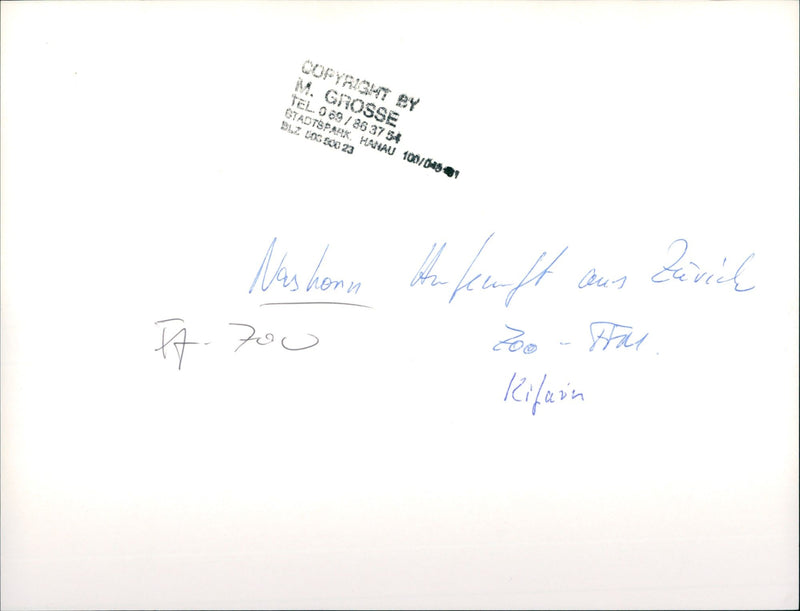 COPYRIGHT BY
M. GROSSE
TEL. 0 69 / 86 37 54
STADTSPARK. HANAU 100/045
BLZ 506 500 23
Nashorn Ankunft aus Zürich
Zoo - FFM.
Kifaru